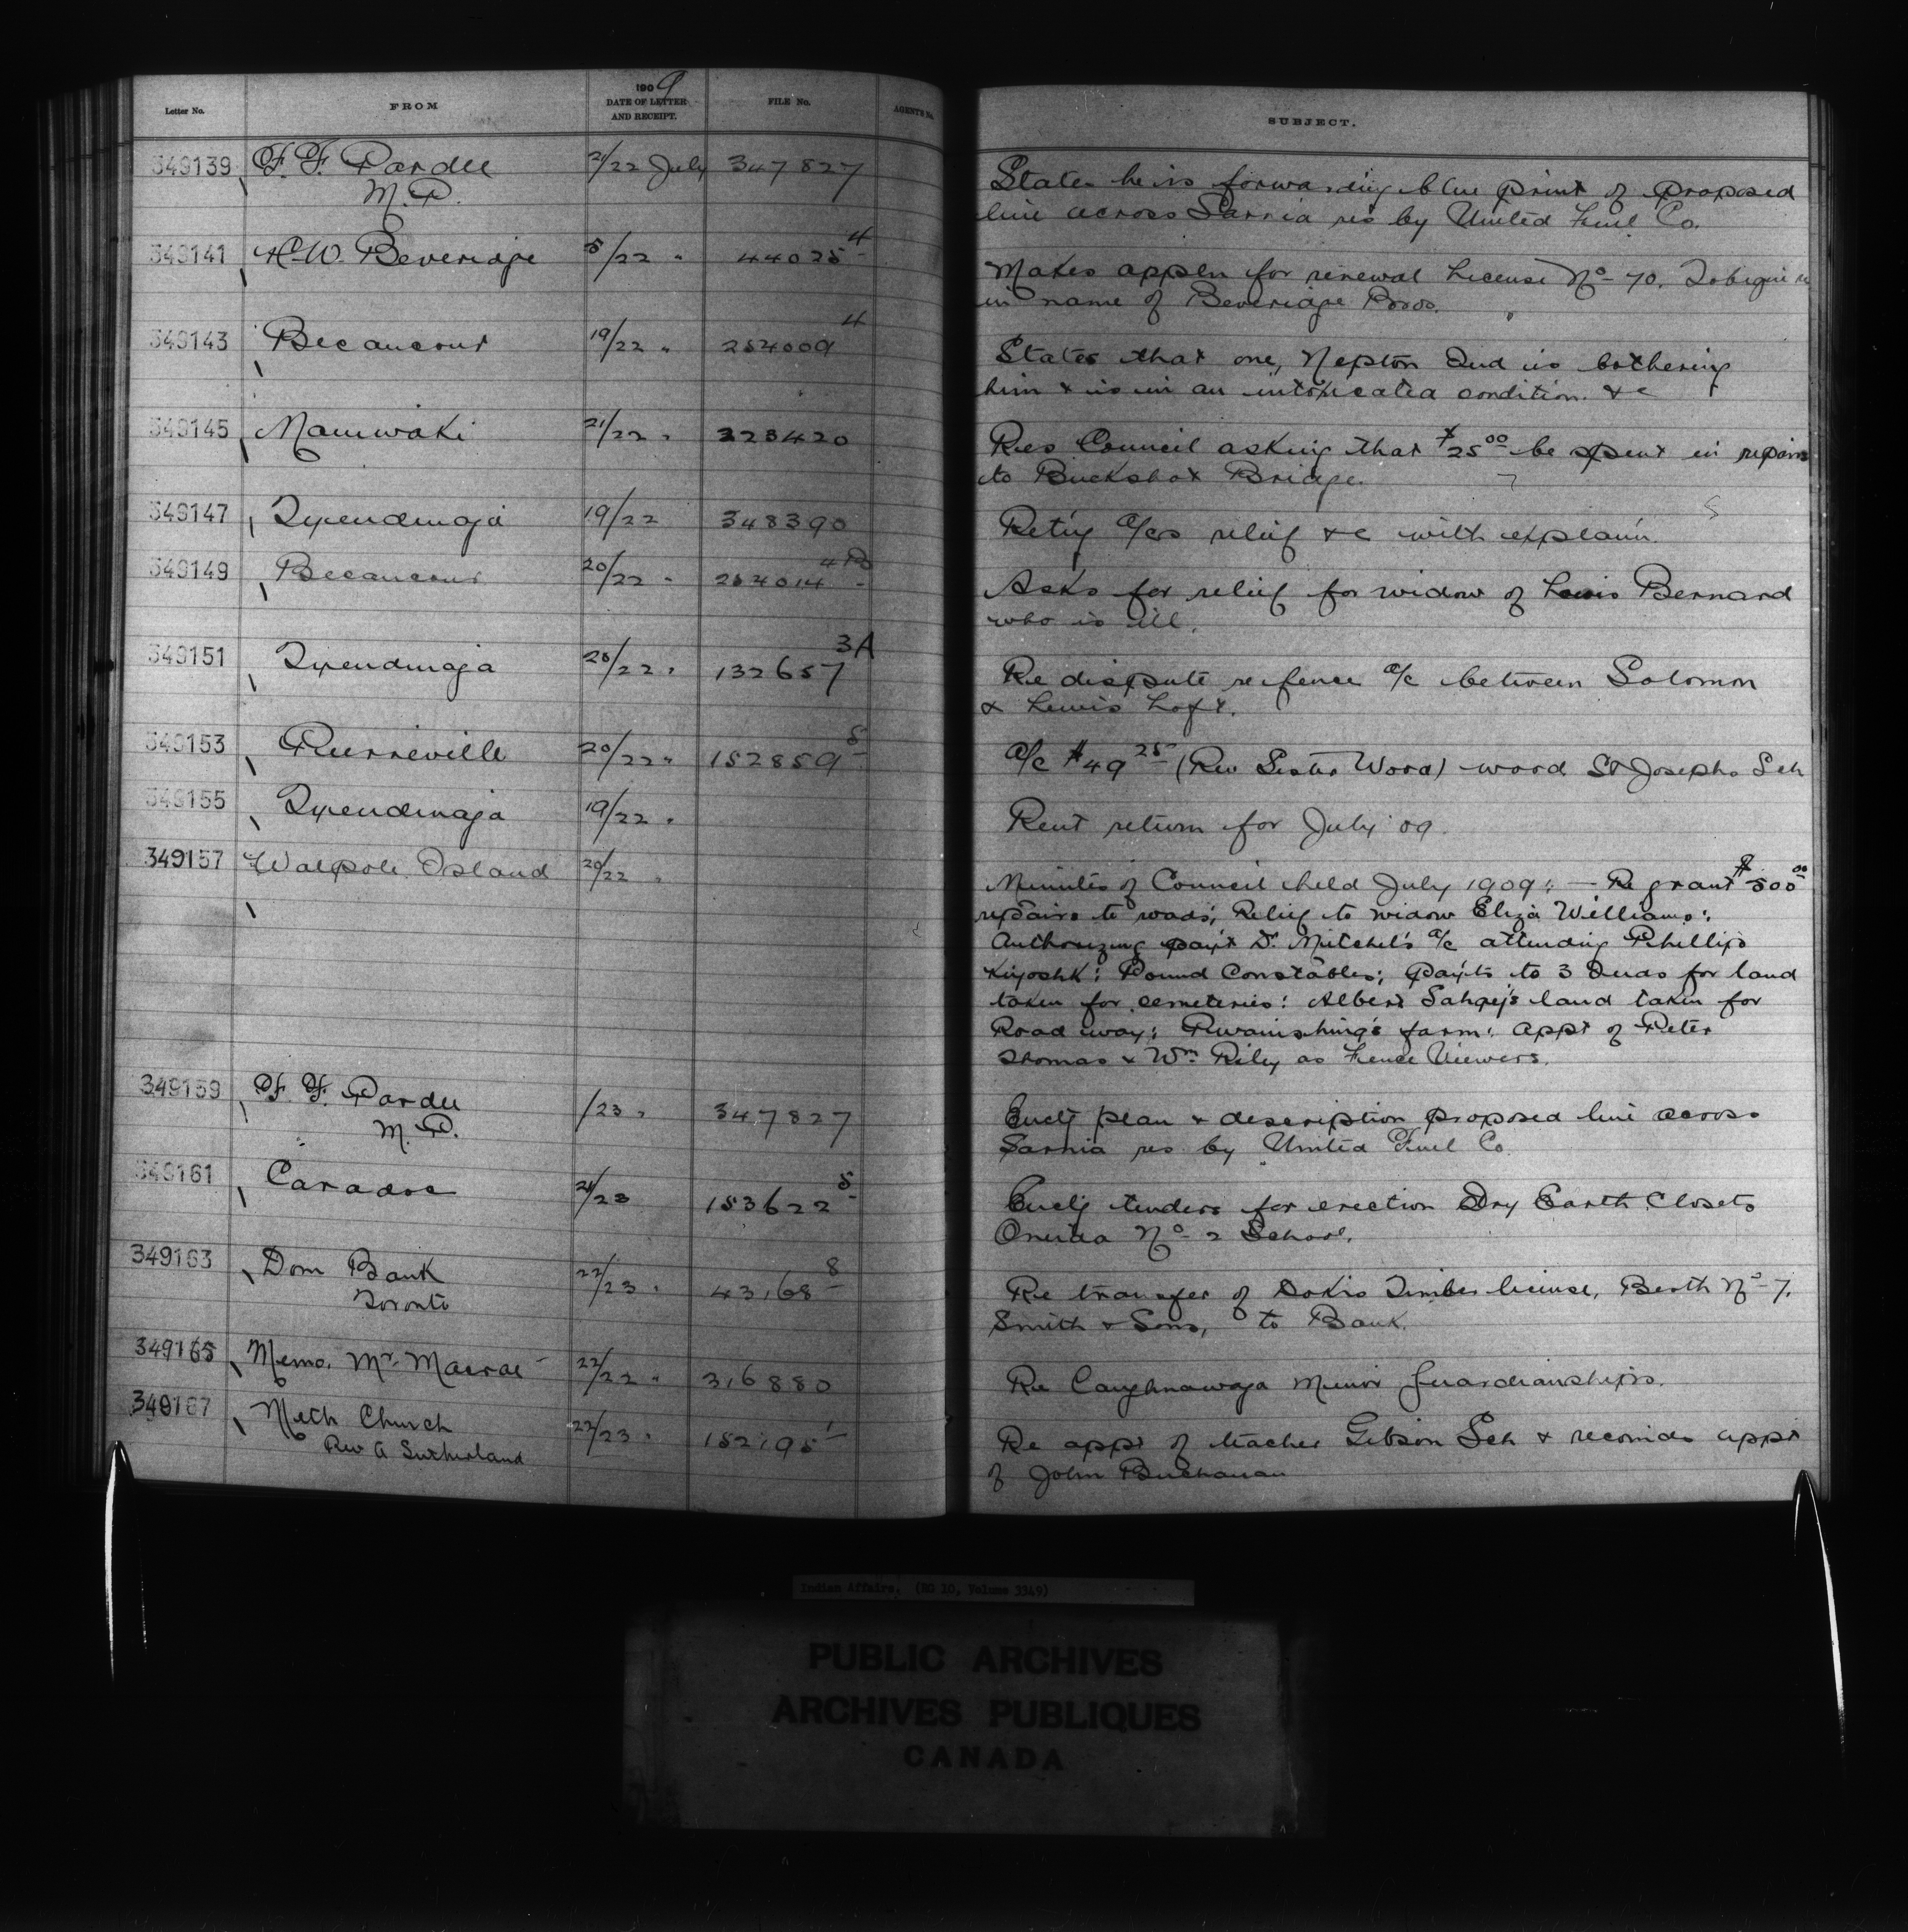 Letter No. FROM 1909 DATE OF LETTER AND RECEIPT. FILE No. AGENT'S No. SUBJECT.
349139 F. F. Pardee 21/22 July 347827 States he is forwarding blue print of proposed
M.P. line across Sarnia res by United Fuel Co.
349141 H.W. Beveridge 5/22 " 44025 4 Makes appln for renewal License No 70. Tobique re
in name of Beveridge Bros.
349143 Becancour 19/22 " 254009 4 States that one, Nepton Ind is bothering
him & is in an intoxicated condition. &c
349145 Maniwaki 21/22 " 223420 Res Council asking that $25 00 be spent in repairs
to Buckshot Bridge.
349147 Tyendinaga 19/22 348390 Retg a/cs relief &c with explann.
349149 Becancour 20/22 " 254014 4B Asks for relief for widow of Louis Bernard
who is ill.
349151 Tyendinaga 20/22 " 132657 3A Re dispute re fence a/c between Solomon
& Lewis Loft.
349153 Pierreville 20/22 " 152859 5 a/c $49 25 (Rev Sister Wood) wood St Josephs Sch
349155 Tyendinaga 19/22 " Rent return for July 09.
349157 Walpole Island 20/22 " Minutes of Council held July 1909: — Re grant $500 00
repairs to roads; Relief to widow Eliza Williams:
Authorizing pay't Dr Mitchel's a/c attending Phillip
Kiyoshk: Pound Constables; pay'ts to 3 Inds for land
taken for cemeteries: Albert Sahgej's land taken for
Road way; farm: appt of Peter
Thomas & Wm Riley as Fence Viewers.
349159 F. F. Pardee /23 " 347827 Enclg plan & description proposed line across
M.P. Sarnia res by United Fuel Co.
349161 Caradoc 21/23 153622 5 Enclg tenders for erection Dry Earth Closets
Oneida No 2 School.
349163 Dom Bank 22/23 " 43168 8 Re transfer of Dokis Timber license, Berth No 7,
Toronto Smith & Sons, to Bank.
349165 Memo. Mr. Macrae 22/22 " 316880 Re Caughnawaga Minor guardianships.
349167 Meth Church 22/23 " 152195 1 Re appt of teacher Gibson Sch & recomds appt
Rev A Sutherland of John Buchanan
Indian Affairs. (RG 10, Volume 3349)
PUBLIC ARCHIVES
ARCHIVES PUBLIQUES
CANADA